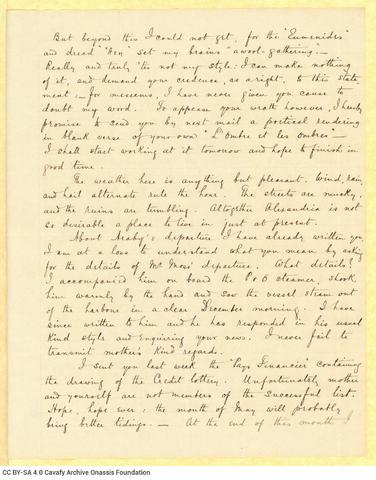 But beyond this I could not get, for the "Eumenides"
and dread "Hen" set my brains "awool-gathering".—
Really and truly 'tis not my style: I can make nothing
of it, and demand your credence, as a right, to this state
ment.— for messeems, I have never given you cause to
doubt my word. To appease your wrath however, I hereby
promise to send you by next mail a poetical rendering
in blank verse of your own "L'Ombre et les ombres"—
I shall start working at it tomorrow and hope to finish in
good time.
The weather here is anything but pleasant. Wind, rain
and hail alternate rule the hour. The streets are mucky,
and the ruins are tumbling. Altogether Alexandria is not
so desirable a place to live in just at present.
About Araby's departure I have already written you
I am at a loss to understand what you mean by asking
for the details of Mr Moss' departure. What details?
I accompanied him on board the P&O steamer, shook
him warmly by the hand and saw the vessel steam out
of the harbour in a clear December morning. I have
since written to him and he has responded in his usual
kind style and enquiring your news. I never fail to
transmit mother's kind regards.
I sent you last week the "Pays Financier" containing
the drawing of the Credit lottery. Unfortunately mother
and yourself are not members of the successful list.
Hope, hope ever: the month of May will probably
bring better tidings.— At the end of this month I
CC BY-SA 4.0 Cavafy Archive Onassis Foundation